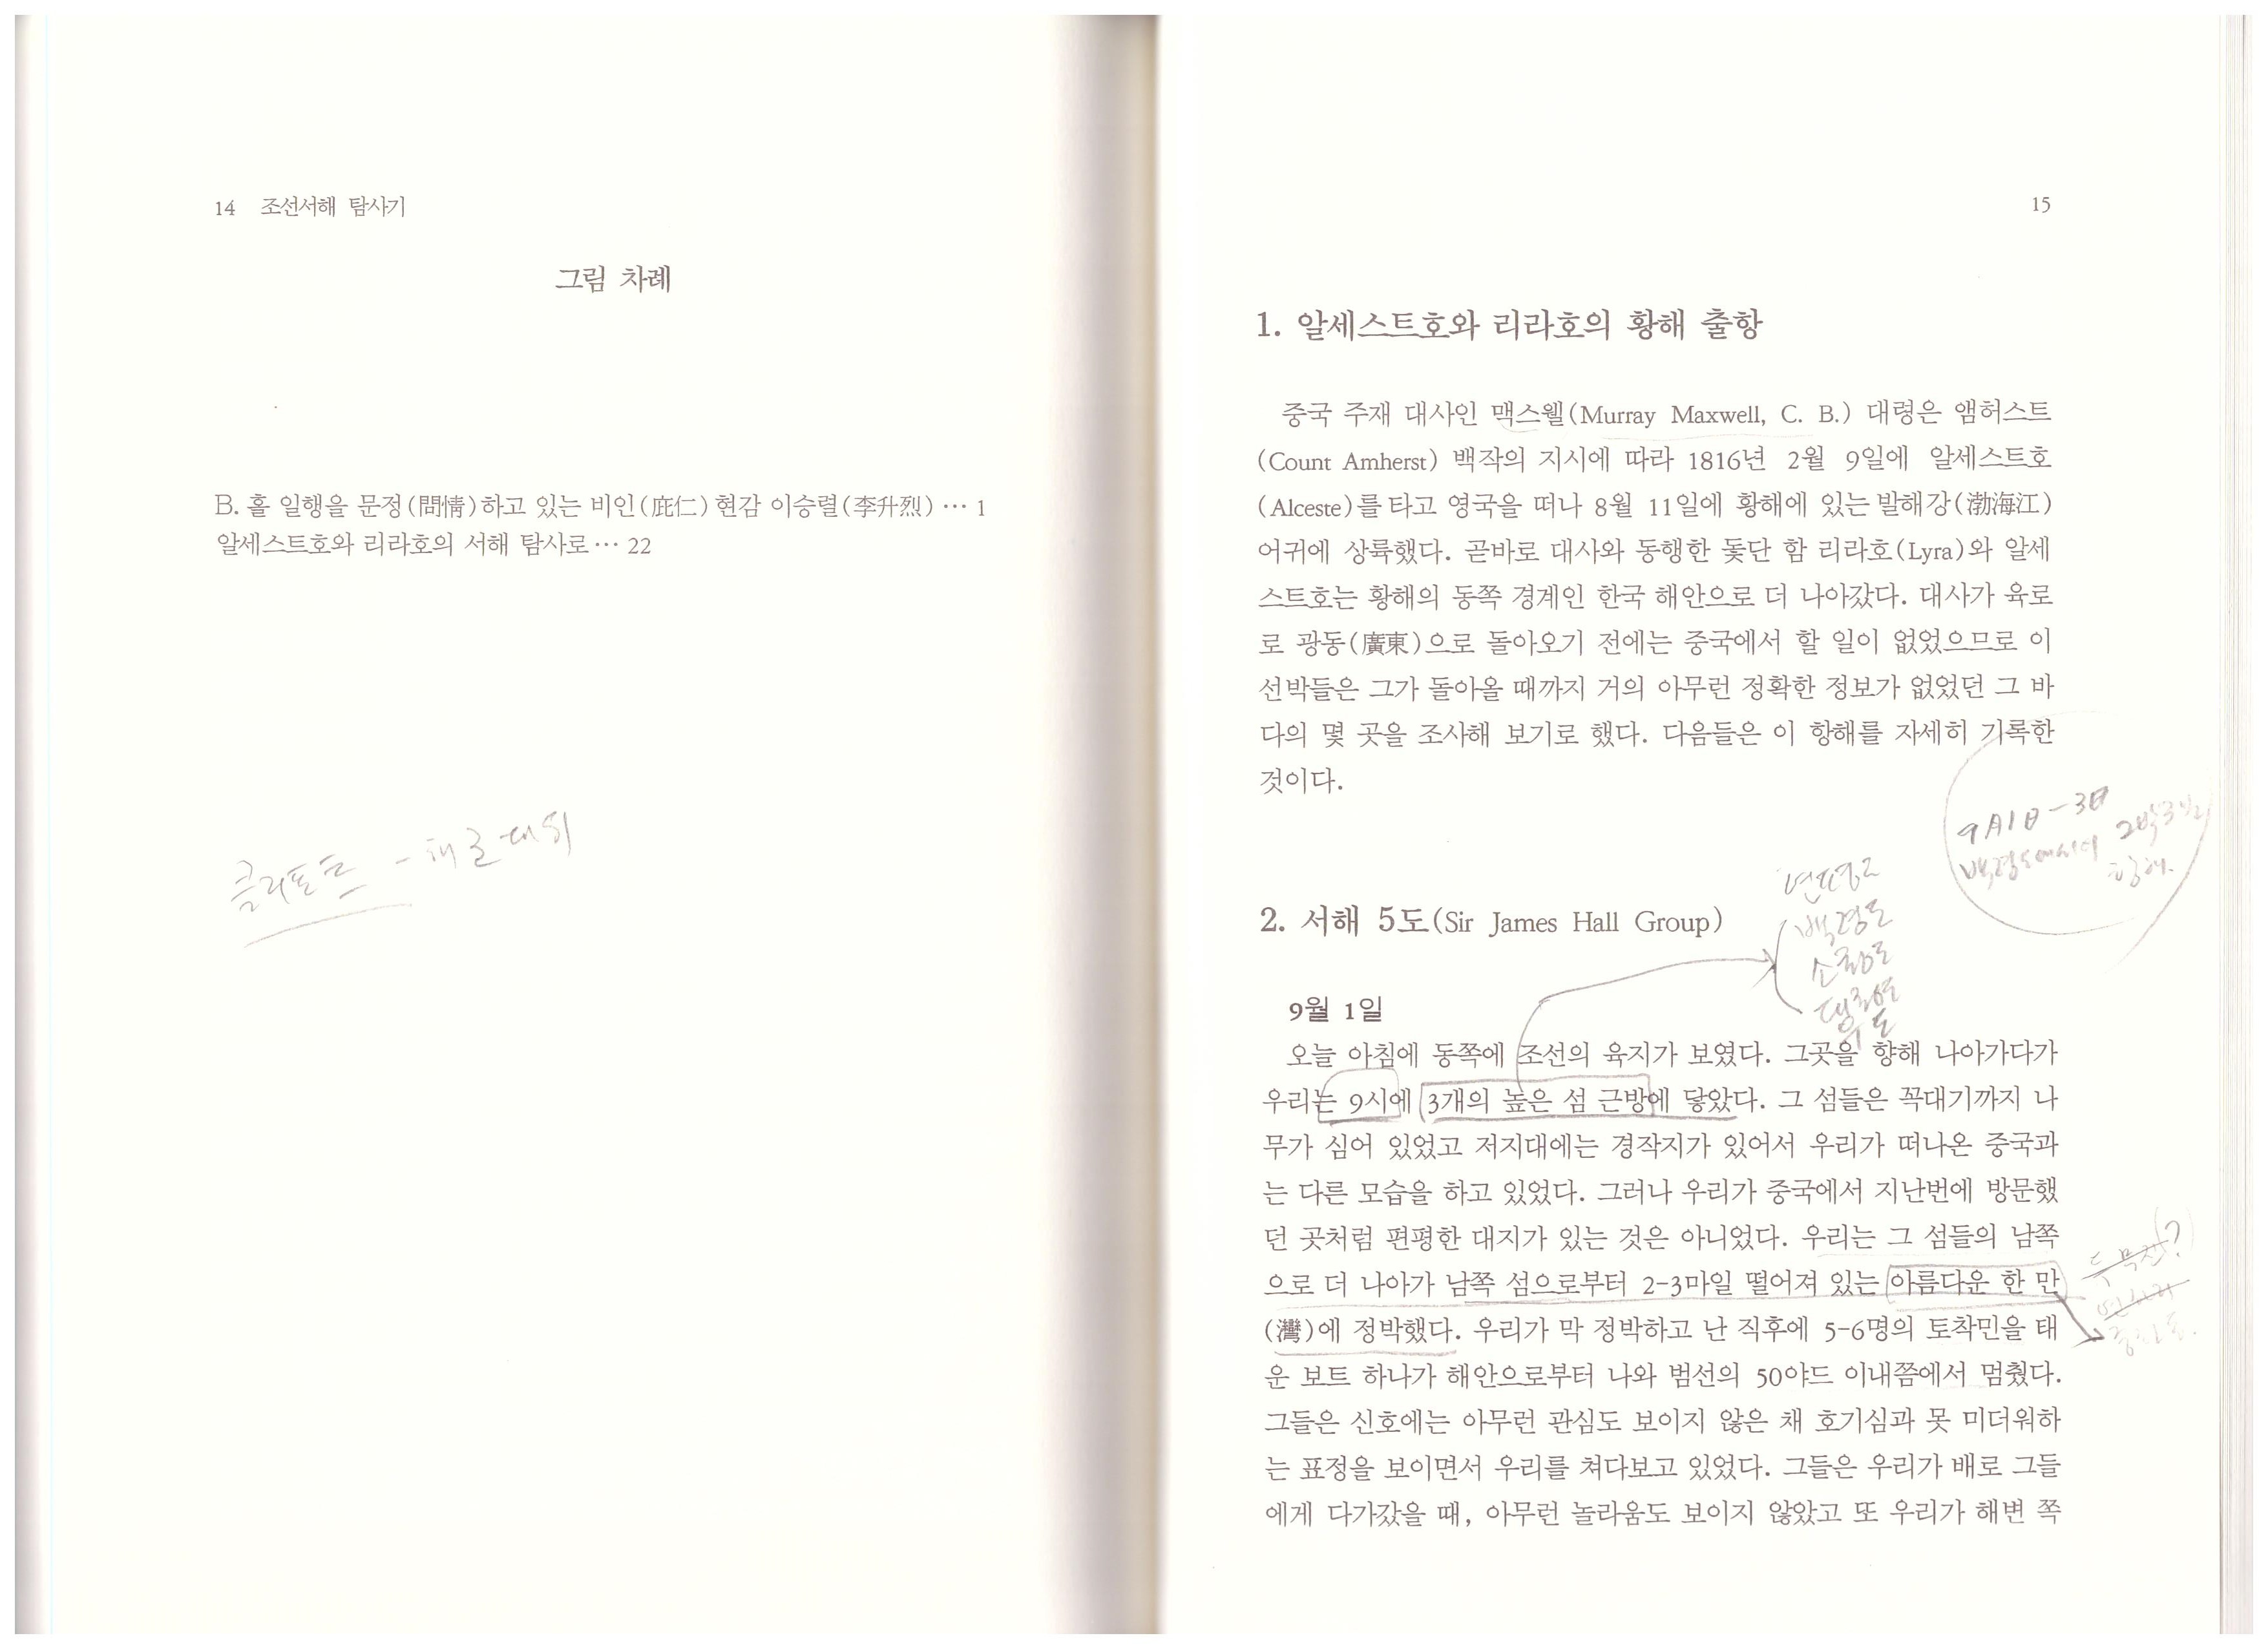 14 조선서해 탐사기
그림 차례
B. 홀 일행을 문정(問情)하고 있는 비인(庇仁) 현감 이승렬(李升烈) … 1
알세스트호와 리라호의 서해 탐사로 … 22
클리포드 - 해군대위
15
1. 알세스트호와 리라호의 황해 출항
중국 주재 대사인 맥스웰(Murray Maxwell, C. B.) 대령은 앰허스트
(Count Amherst) 백작의 지시에 따라 1816년 2월 9일에 알세스트호
(Alceste)를 타고 영국을 떠나 8월 11일에 황해에 있는 발해강(渤海江)
어귀에 상륙했다. 곧바로 대사와 동행한 돛단 함 리라호(Lyra)와 알세
스트호는 황해의 동쪽 경계인 한국 해안으로 더 나아갔다. 대사가 육로
로 광동(廣東)으로 돌아오기 전에는 중국에서 할 일이 없었으므로 이
선박들은 그가 돌아올 때까지 거의 아무런 정확한 정보가 없었던 그 바
다의 몇 곳을 조사해 보기로 했다. 다음들은 이 항해를 자세히 기록한
것이다.
9月1日-3日
2박3일
항해.
백령도
소청도
대청도
2. 서해 5도(Sir James Hall Group)
9월 1일
오늘 아침에 동쪽에 조선의 육지가 보였다. 그곳을 향해 나아가다가
우리는 9시에 3개의 높은 섬 근방에 닿았다. 그 섬들은 꼭대기까지 나
무가 심어 있었고 저지대에는 경작지가 있어서 우리가 떠나온 중국과
는 다른 모습을 하고 있었다. 그러나 우리가 중국에서 지난번에 방문했
던 곳처럼 편평한 대지가 있는 것은 아니었다. 우리는 그 섬들의 남쪽
으로 더 나아가 남쪽 섬으로부터 2-3마일 떨어져 있는 아름다운 한 만
(灣)에 정박했다. 우리가 막 정박하고 난 직후에 5-6명의 토착민을 태
운 보트 하나가 해안으로부터 나와 범선의 50야드 이내쯤에서 멈췄다.
그들은 신호에는 아무런 관심도 보이지 않은 채 호기심과 못 미더워하
는 표정을 보이면서 우리를 쳐다보고 있었다. 그들은 우리가 배로 그들
에게 다가갔을 때, 아무런 놀라움도 보이지 않았고 또 우리가 해변 쪽
두무진?